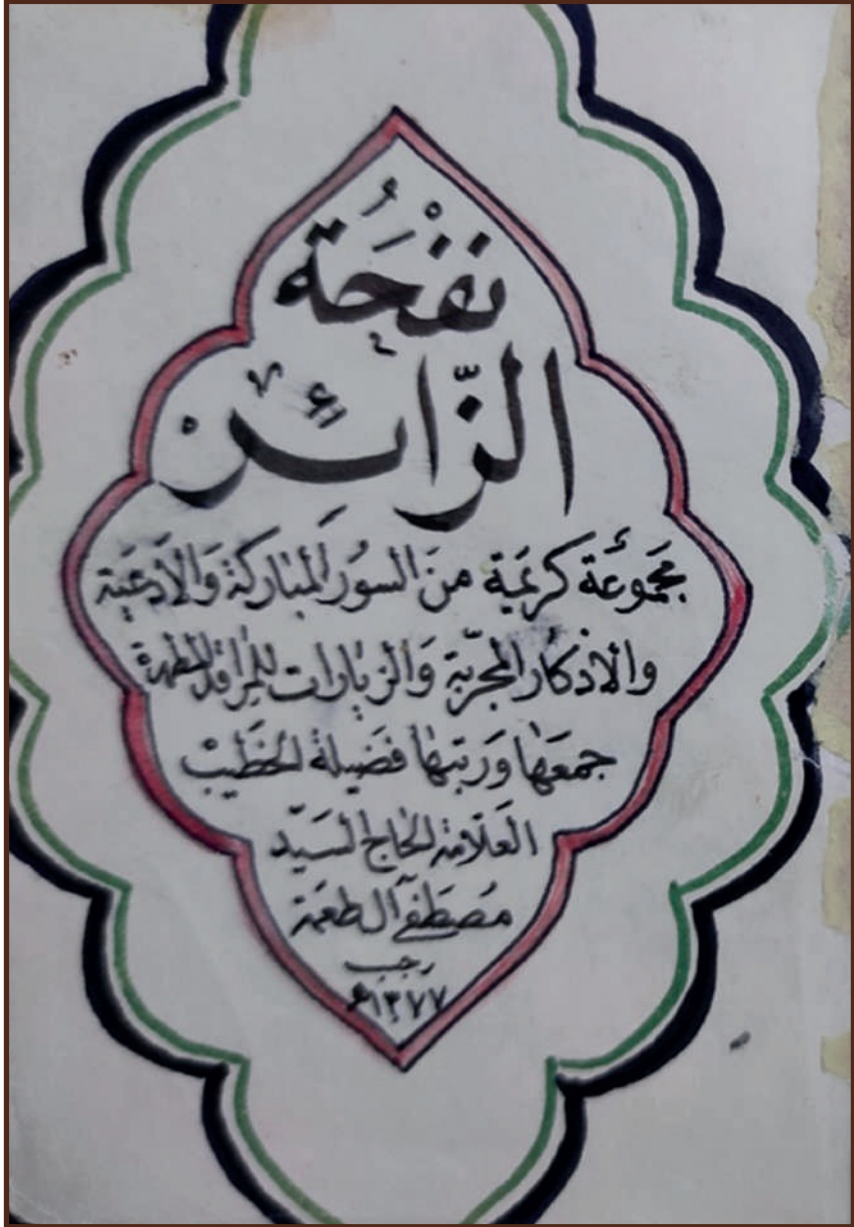 نفْحَة
الزّائر
مجموعَة كريمَية منَ السوُر المباركة وَالأدعيَة
والأذكار المجرّبة وَالزيارات للمراقد المطهرة
جمعَها وَرتبها فضيلة الخطَيبْ
العَلّامة الحاج السَيّد
مُصَطفى آل طعمَة
رجب
١٣٧٧ﻫ